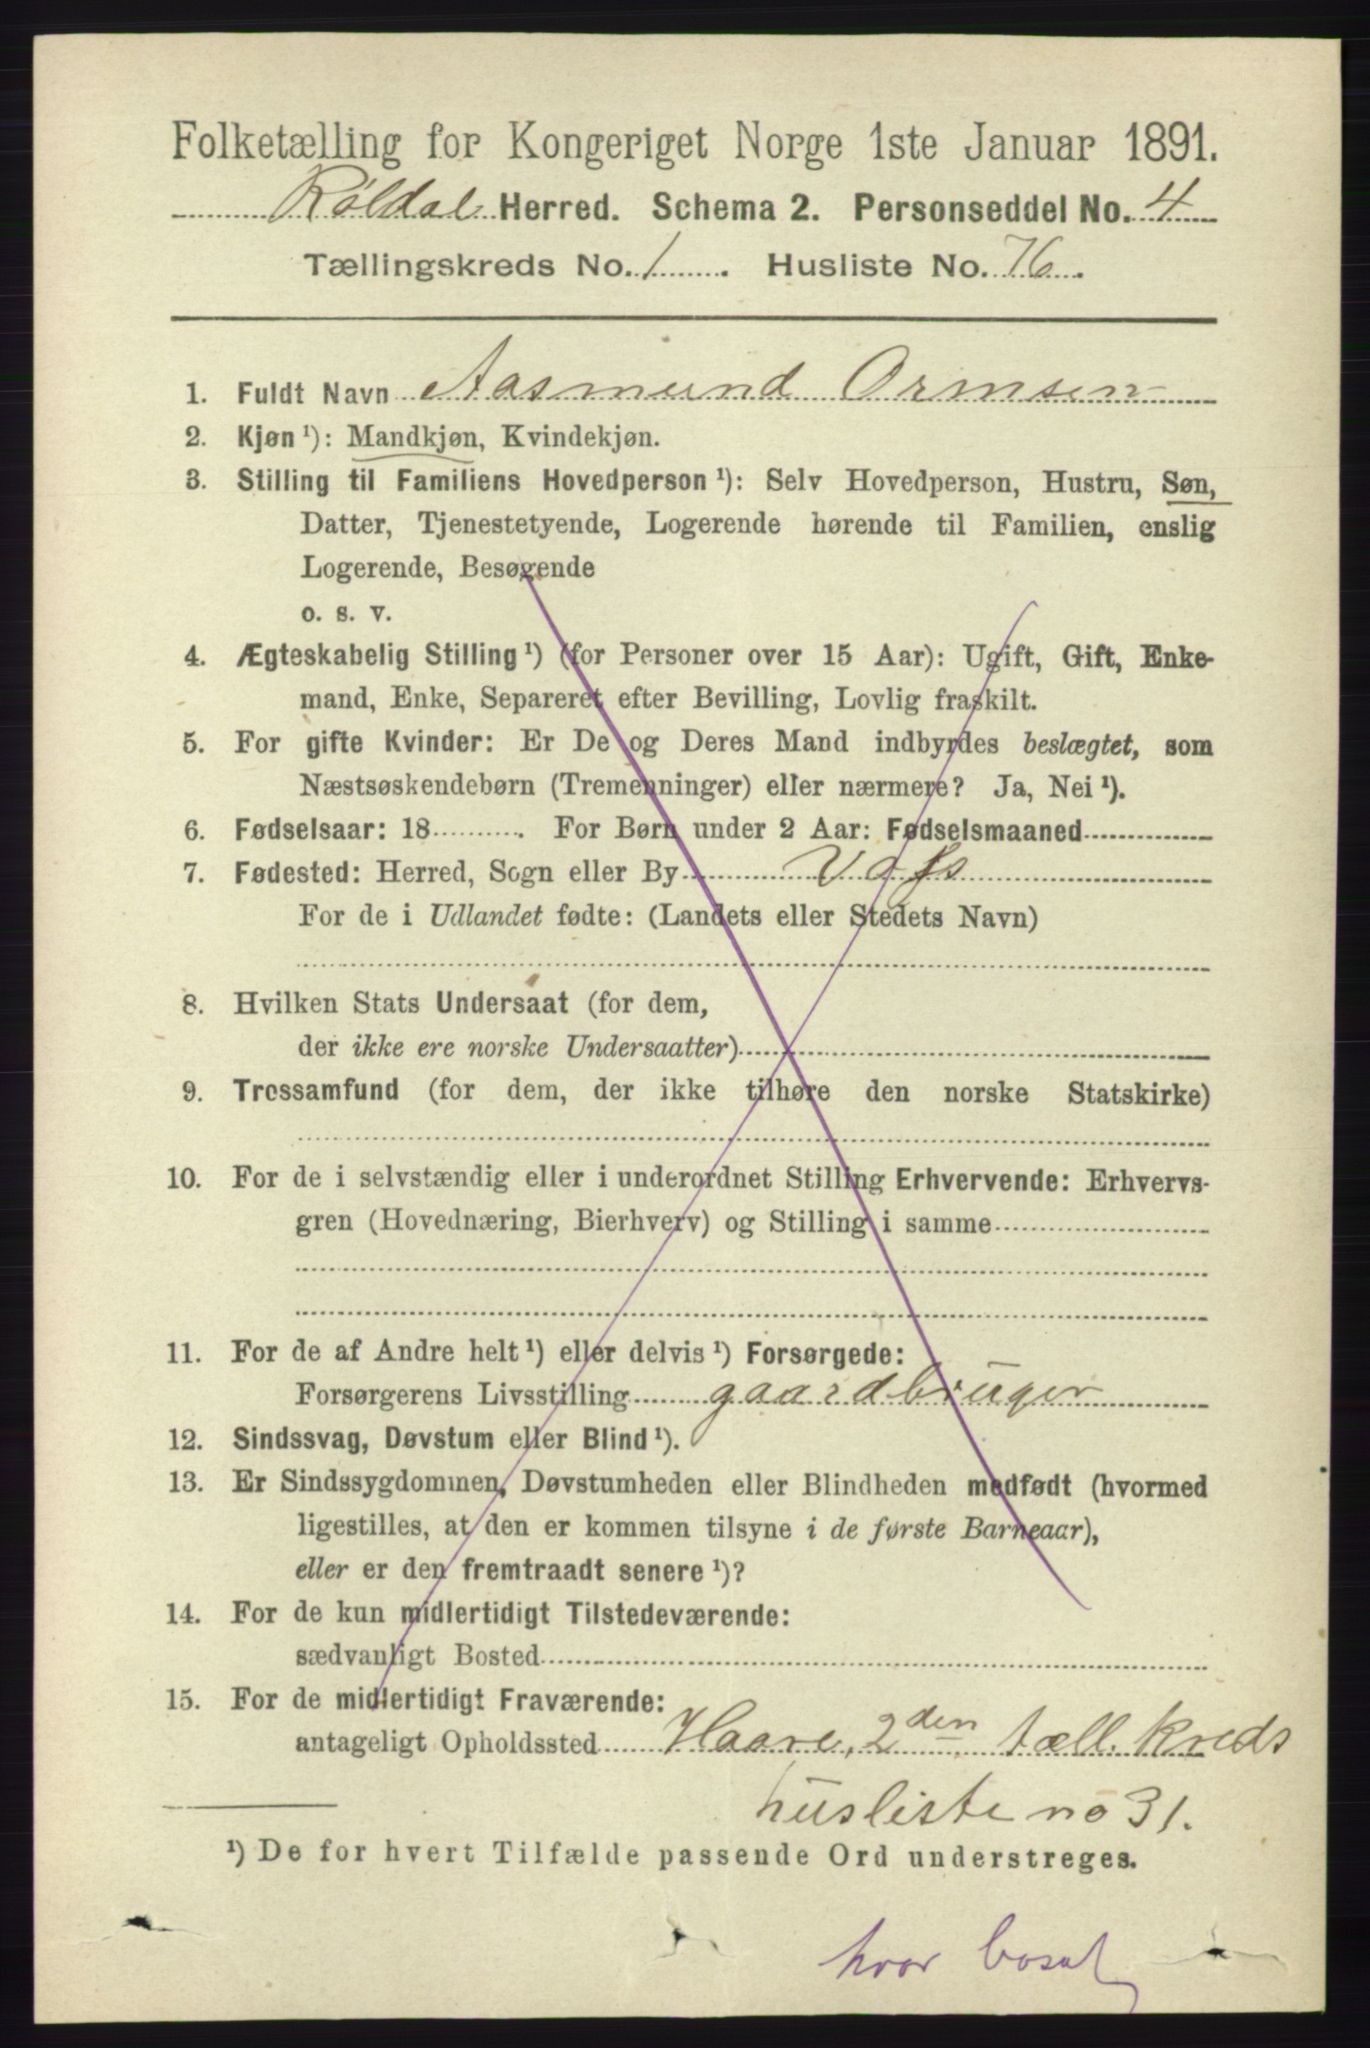 Folketælling for Kongeriget Norge 1ste Januar 1891.
Røldal Herred. Schema 2. Personseddel No. 4
Tællingskreds No. 1. Husliste No. 76.
1. Fuldt Navn Aasmund Ormsen
2. Kjøn ¹): Mandkjøn, Kvindekjøn.
3. Stilling til Familiens Hovedperson ¹): Selv Hovedperson, Hustru, Søn,
Datter, Tjenestetyende, Logerende hørende til Familien, enslig
Logerende, Besøgende
o. s. v.
4. Ægteskabelig Stilling ¹) (for Personer over 15 Aar): Ugift, Gift, Enke-
mand, Enke, Separeret efter Bevilling, Lovlig fraskilt.
5. For gifte Kvinder: Er De og Deres Mand indbyrdes beslægtet, som
Næstsøskendebørn (Tremenninger) eller nærmere? Ja, Nei ¹).
6. Fødselsaar: 18 . For Børn under 2 Aar: Fødselsmaaned
7. Fødested: Herred, Sogn eller By
For de i Udlandet fødte: (Landets eller Stedets Navn)
8. Hvilken Stats Undersaat (for dem,
der ikke ere norske Undersaatter)
9. Trossamfund (for dem, der ikke tilhøre den norske Statskirke)
10. For de i selvstændig eller i underordnet Stilling Erhvervende: Erhvervs-
gren (Hovednæring, Bierhverv) og Stilling i samme
11. For de af Andre helt ¹) eller delvis ¹) Forsørgede:
Forsørgerens Livsstilling gaardbruger
12. Sindssvag, Døvstum eller Blind ¹).
13. Er Sindssygdommen, Døvstumheden eller Blindheden medfødt (hvormed
ligestilles, at den er kommen tilsyne i de første Barneaar),
eller er den fremtraadt senere ¹)?
14. For de kun midlertidigt Tilstedeværende:
sædvanligt Bosted
15. For de midlertidigt Fraværende:
antageligt Opholdssted Haare, 2den tæll. kreds
husliste no 31.
¹) De for hvert Tilfælde passende Ord understreges.
hvor bosat